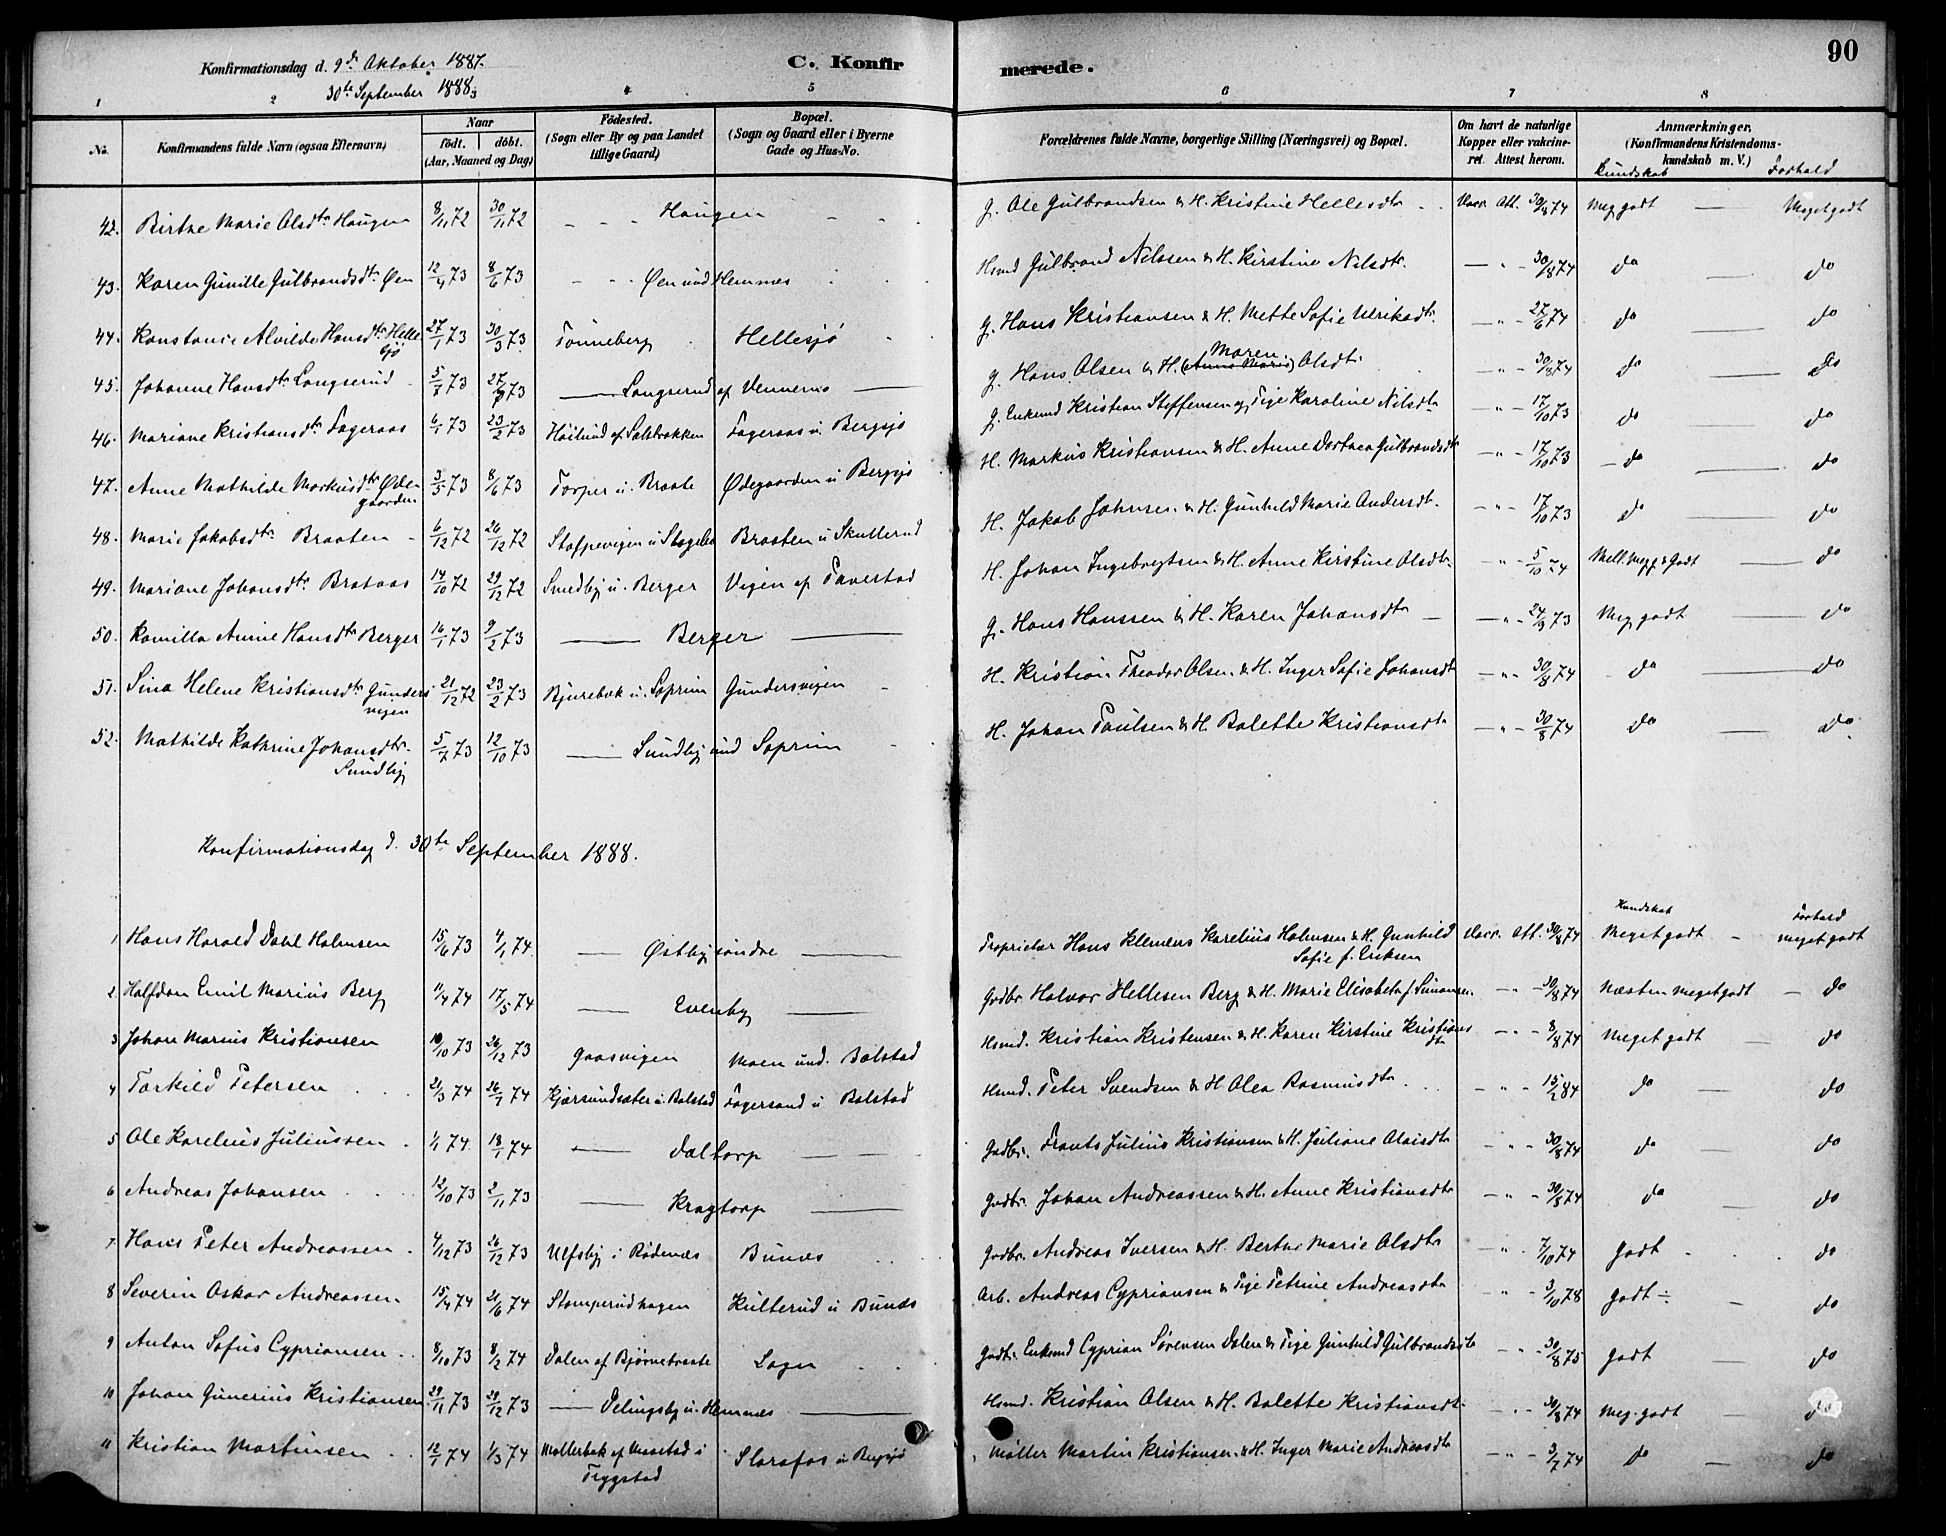 Konfirmationsdag d. 9de Oktober 1887.
30te September 1888
C. Konfirmerede.
90
1 2 3 4 5 6 7 8
No.
Konfirmandens fulde Navn (ogsaa Efternavn)
Naar
født. døbt.
(Aar, Maaned og Dag)
Fødested.
(Sogn eller By og paa Landet
tillige Gaard)
Bopæl.
(Sogn og Gaard eller i Byerne
Gade og Hus-No.
Forældrenes fulde Navne, borgerlige Stilling (Næringsvei) og Bopæl.
Om havt de naturlige
Kopper eller vakcine-
ret. Attest herom.
Anmærkninger.
(Konfirmandens Kristendoms-
kundskab m. V.)
Kundskab Forhold
42. Birthe Marie Olsdtr Haugen 8/11 72 30/11 72 - - Haugen - - G. Ole Gulbrandsen & H. Kristine Hellesdtr Vacc. Att. 30/8 74 Meg godt — Meget godt
43. Karen Gunille Gulbrandsdtr Øen 12/4 73 8/6 73 - - Øen und Hemnæs Hsmd Gulbrand Nilssen & H. Kirstine Nilsdtr. — " - 30/8 74 do — do
44. Konstance Alvilde Hansdtr Hellesjø 27/1 73 30/3 73 Tønneberg Hellesjø G. Hans Kristiansen & H. Mette Sofie Ulriksdtr. — " - 27/6 74 do — do
45. Johanne Hansdtr Langserud 5/7 73 27/7 73 — Langserud af Vennemo — G. Hans Olsen & H. (Anne Marie) Maren Olsdtr — " - 30/8 74 do — do
46. Mariane Kristiansdtr Fageraas 6/1 73 23/2 73 Høilund af Salbrækken Fageraas u. Bergsjø G. Enkemd Kristian Steffensen og Pige Karoline Nilsdtr — " - 17/10 73 do — do
47. Anne Mathilde Markusdtr Ødegaarden 3/5 73 8/6 73 Torper u. Braate Ødegaarden u Bergsjø H. Markus Kristiansen & H. Anne Dorthea Gulbrandsdtr — " - 17/10 73 do — do
48. Marie Jakobsdtr Braaten 6/12 72 26/12 72 Braaten u Skullerud H. Jakob Johnsen & H. Gunhild Marie Andersdtr. — " - 17/10 73 do — do
49. Mariane Johansdtr Brataas 14/10 72 29/12 72 Smedbøl u. Berger Vigen af Tavestad H. Johan Ingebregtsen & H. Anne Kirstine Olsdtr — " - 5/10 74 Mell. Meg & Godt — do
50. Kamilla Annie Hansdtr Berger 16/1 73 9/2 73 — Berger — G. Hans Hanssen & H. Karen Johansdtr — " - 24/9 73 Meg godt — do
51. Sina Helene Kristiansdtr Gundersvigen 21/12 72 23/2 73 Bjurebæk u. Soprim Gundersvigen H. Kristian Theodor Olsen & H. Inger Sofie Johansdtr — " - 30/8 74 do — do
52. Mathilde Kathrine Johansdtr. Sundby 5/7 73 12/10 73 — Sundby und Soprim H. Johan Paulsen & H. Bolette Kristiansdtr — " - 30/8 74 do — do
Konfirmationsdag d. 30te September 1888.
Kundskab Forhold
1 Hans Harald Dahl Halmsen 15/6 73 4/1 74 — Østby søndre — Proprietær Hans Klemens Karelius Halmsen & H. Gunhild Sofie f. Eriksen Vacc. Att. 30/8 74 Meget godt - meget godt
2 Halfdan Emil Marius Berg 11/4 74 17/5 74 — Evenby — Gadbr. Halvor Hellesen Berg & H. Marie Elisabeth f. Simonsen — " - 30/8 74 Næsten meget godt — do
3 Johan Marius Kristiansen 10/10 73 26/12 73 Gaasvigen Moen und. Bolstad Hsmd. Kristian Kristensen & H. Karen Kirstine Kristiansdtr — " - 8/8 74 Meget godt — do
4 Torkild Petersen 21/3 74 26/7 74 Kjærsundsæter u. Bolstad Fagersand u Bolstad Hsmd. Peter Svendsen & H. Olea Rasmusdtr — " - 15/2 84 do — do
5 Ole Karelius Juliussen 1/1 74 18/1 74 — Daltorp — Gadbr. Frants Julius Kristiansen & H. Juliane Olaisdtr " - 30/8 74 do — do
6 Andreas Johansen 12/10 73 2/11 73 — Kragtorp — Gadbr. Johan Andreassen & H. Anne Kristiansdtr — " - 30/8 74 do — do
7 Hans Peter Andreassen 4/12 73 26/12 73 Ulfsby i Rødenæs Bunæs Gadbr. Andreas Iversen & H. Berthe Marie Olsdtr — " 7/10 74 Godt do
8 Severin Oskar Andreassen 15/4 74 21/6 74 Stomperudhagen Kulterud u Bunæs Arb. Andreas Cypriansen & Pige Petrine Andreasdtr - " - 3/10 78 Godt ÷ — do
9 Anton Sofus Cypriansen 8/10 73 8/2 74 Dalen af Bjørnebraate Lagn Gadbr. Enkemd Cyprian Sørensen Dalen & Pige Gunhild Gulbrandsdtr — " - 30/8 75 Godt — do
10 Johan Gunerius Kristiansen 29/11 73 29/12 73 — Delingsby u. Hemnæs — Hsmd. Kristian Olsen & H. Bolette Kristiansdtr. — " - 30/8 74 Meg. godt — do
11 Kristian Martinsen 12/1 74 1/3 74 Møllerbæk af Maastad i Trygstad Slorafos u Bergsjø Møller Martin Kristiansen & H. Inger Marie Andreasdtr — " - 3/7 74 do — do